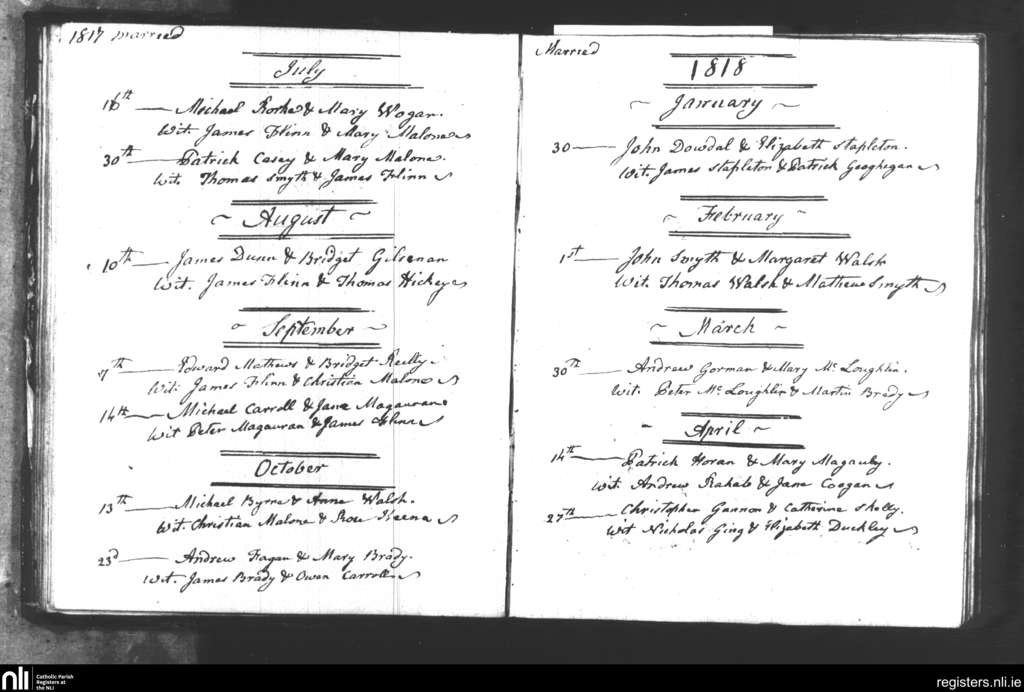 1817 married
July
16th Michael Rorke & Mary Wogan.
Wit. James Flinn & Mary Malone
30th Patrick Casey & Mary Malone.
Wit. Thomas Smyth & James Flinn
August
10th James Dunn & Bridget Gilsenan
Wit. James Flinn & Thomas Hickey
September
7th Edward Mathews & Bridget Reilly.
Wit. James Flinn & Christian Malone
14th Michael Carroll & Jane Magauran
Wit Peter Magauran & James Flinn
October
13th Michael Byrne & Anne Walsh.
Wit. Christian Malone & Keena
23d Andrew Fagan & Mary Brady.
Wit. James Brady & Owen Carroll
Married
1818
January
30 John Dowdal & Elizabeth Stapleton.
Wit. James Stapleton & Patrick Geoghegan
February
1st John Smyth & Margaret Walsh
Wit. Thomas Walsh & Mathew Smyth
March
30th Andrew Gorman & Mary Mc Loughlin.
Wit. Peter Mc Loughlin & Martin Brady
April
14th Patrick Horan & Mary Magauly.
Wit. Andrew & Jane Coogan
27th Christopher Gannon & Catherine Shelly.
Wit Nicholas Ging & Elizabeth Duckley
nli
Catholic Parish
Registers at
the NLI
registers.nli.ie